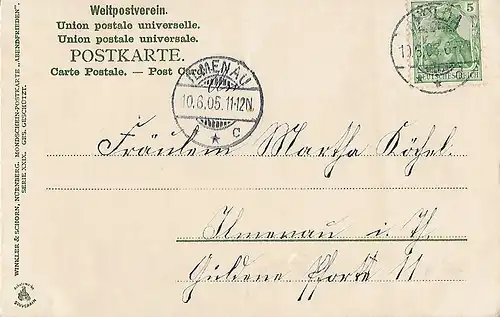 Weltpostverein.
Union postale universelle.
Union postale universale.
POSTKARTE.
Carte Postale. — Post Card
ILMENAU
10.6.05.11-12N.
* c
5
10.6.05.
DEUTSCHES REICH
Fräulein Martha Köchel.
Ilmenau i. Th.
Güldene Pforte 11
WINKLER & SCHORN, NÜRNBERG. MONDSCHEIN-POSTKARTE „ABENDFRIEDEN".
SERIE XXIX. GES. GESCHÜTZT.